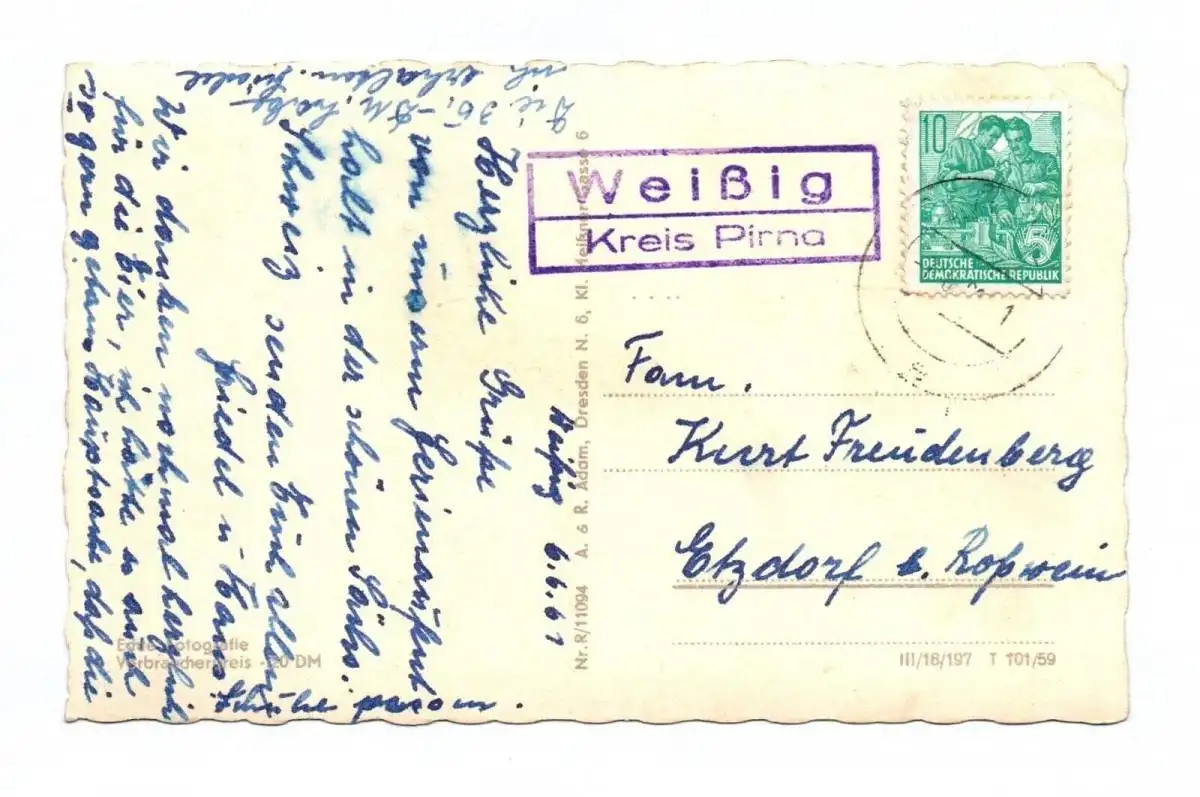 Weißig 6.6.61
Herzliche Grüße
von unserm Ferienaufent
halt in der schönen Sächs.
Schweiz senden Euch allen
Friedel u Hans
Wir danken nochmal herzlich
für die Eier, ich hätte es auch
so gern getan. Hauptsache, daß die
Schuhe passen.
Die 36,- DM habe
ich erhalten. Friedel
Weißig
Kreis Pirna
10
5
DEUTSCHE
DEMOKRATISCHE REPUBLIK
Fam.
Kurt Freudenberg
Etzdorf b. Roßwein
Nr. R/11094 A. & R. Adam, Dresden N. 6, Kl. Meißner Gasse 6
Echte Fotografie
Verbraucherpreis -,20 DM
III/18/197 T 101/59